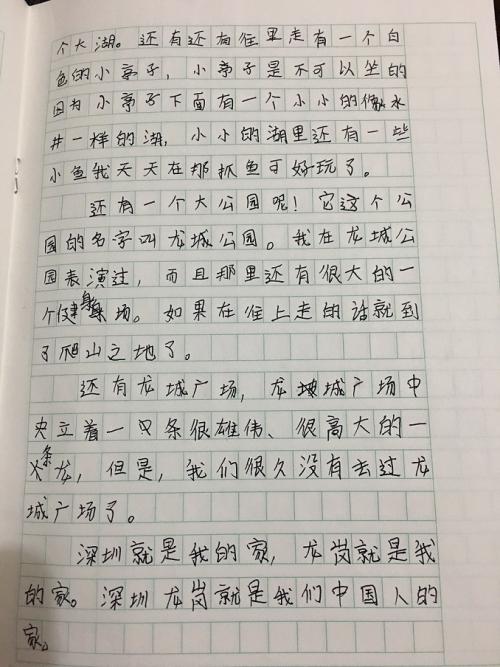 个大湖。还有还有往里走有一个白
色的小亭子，小亭子是不可以坐的
因为小亭子下面有一个小小的像水
井一样的湖，小小的湖里还有一些
小鱼我天天在那抓鱼可好玩了。
还有一个大公园呢！它这个公
园的名字叫龙城公园。我在龙城公
园表演过，而且那里还有很大的一
个健身场。如果在往上走的话就到
了爬山之地了。
还有龙城广场，龙城广场中
央立着一条很雄伟、很高大的一
条龙，但是，我们很久没有去过龙
城广场了。
深圳就是我的家，龙岗就是我
的家。深圳龙岗就是我们中国人的
家。